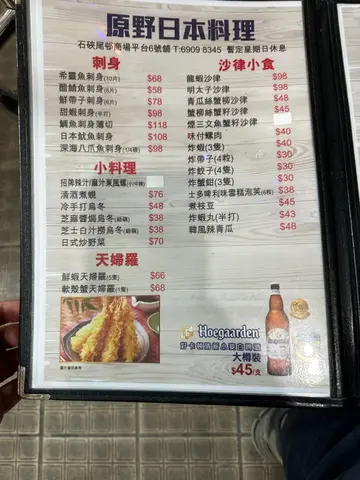 原野日本料理
石硤尾邨商場平台6號舖 T:6909 8345 暫定星期日休息
刺身
希靈魚刺身(10片) $68
醋鯖魚刺身(8片) $58
鮮帶子刺身(6片) $78
甜蝦刺身(半打) $98
鯛魚刺身薄切 $118
日本魷魚刺身 $108
深海八爪魚刺身(1/4磅) $98
小料理
招牌辣汁/麻汁東風螺
清酒煮蜆 $76
冷手打烏冬 $48
芝麻醬焗烏冬 $38
芝士白汁撈烏冬 $38
日式炒野菜 $70
天婦羅
鮮蝦天婦羅(5隻) $66
軟殼蟹天婦羅(1隻) $68
圖片僅供參考
沙律小食
龍蝦沙律 $98
明太子沙律 $98
青瓜絲蟹柳沙律 $48
蟹柳絲蟹籽沙律 $45
煙三文魚蟹籽沙律
味付螺肉 $40
炸蝦(3隻) $40
炸帶子(4粒) $30
炸餃子(4隻) $30
炸蟹鉗(3隻) $30
士多啤利味雪糕泡芙(6粒) $38
煮枝豆 $45
炸蝦丸(半打) $43
韓風辣青瓜 $48
Hoegaarden
大樽裝
$45/支